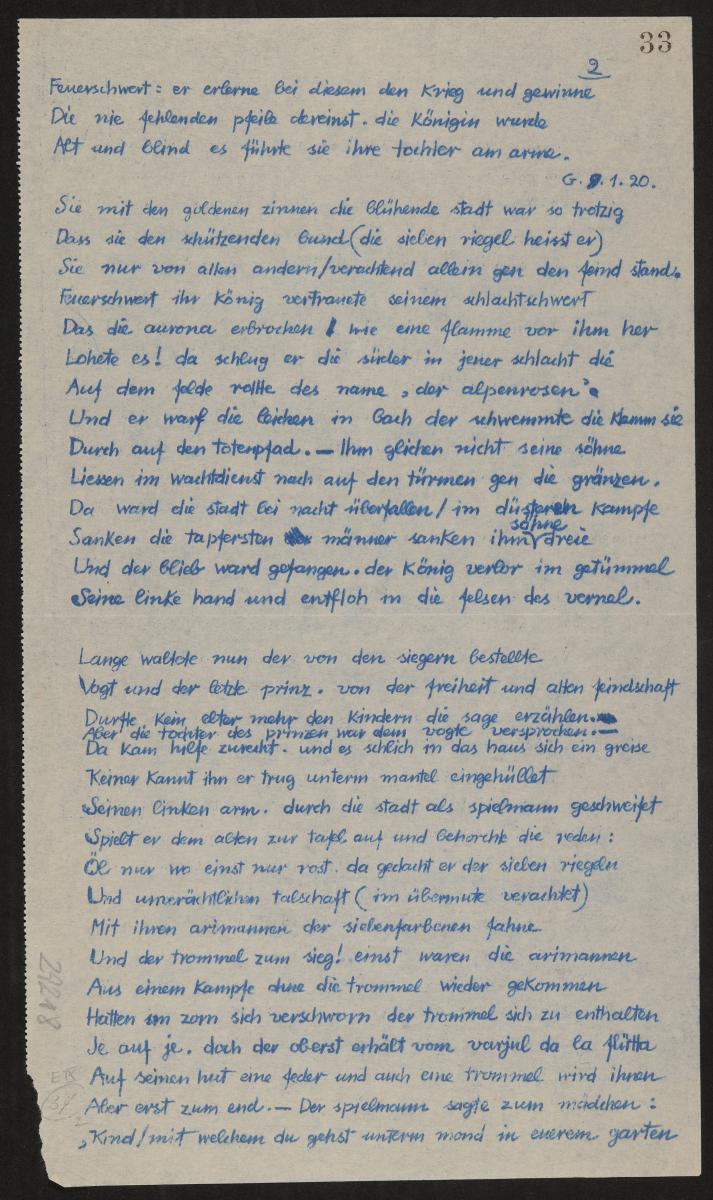 33
2
Feuerschwert: er erlerne bei diesem den Krieg und gewinne
Die nie fehlenden pfeile dereinst. die Königin wurde
Alt und blind es führte sie ihre tochter am arme.
G. 9.1.20.
Sie mit den goldenen zinnen die blühende stadt war so trotzig
Dass sie den schützenden bund (die sieben riegel heisst er)
Sie nur von allen andern/verachtend allein gen den feind stand.
Feuerschwert ihr König vertrauete seinem schlachtschwert
Das die aurona erbrochen / wie eine flamme vor ihm her
Lohete es! da schlug er die süder in jener schlacht die
Auf dem felde rollte des name ‚der alpenrosen'.
Und er warf die leichen in bach der schwemmte die Klamm sie
Durch auf den totenpfad. — Ihm glichen nicht seine söhne
Liessen im wachtdienst nach auf den türmen gen die gränzen.
Da ward die stadt bei nacht überfallen/ im düsteren Kampfe
Sanken die tapfersten männer sanken ihm söhne dreie
Und der blieb ward gefangen. der König verlor im getümmel
Seine linke hand und entfloh in die felsen des vernel.
Lange waltete nun der von den siegern bestellte
Vogt und der letzte prinz. von der freiheit und alten feindschaft
Durfte kein elter mehr den Kindern die sage erzählen.
Aber die tochter des prinzen war dem vogte versprochen. —
Da kam hilfe zurecht. und es schlich in das haus sich ein greise
Keiner kannt ihn er trug unterm mantel eingehüllet
Seinen linken arm. durch die stadt als spielmann geschweifet
Spielt er dem alten zur tafel auf und behorcht die reden:
Öl nur wo einst nur rost. da gedacht er der sieben riegeln
Und unverächtlichen talschaft (im übermute verachtet)
Mit ihren arimannen der siebenfarbenen fahne
Und der trommel zum sieg! einst waren die arimannen
Aus einem Kampfe ohne die trommel wieder gekommen
Hatten im zorn sich verschworn der trommel sich zu enthalten
Je auf je. doch der oberst erhält vom varjul da la flütta
Auf seinen hut eine feder und auch eine trommel wird ihnen
Aber erst zum end. — Der spielmann sagte zum mädchen:
‚Kind/mit welchem du gehst unterm mond in euerem garten